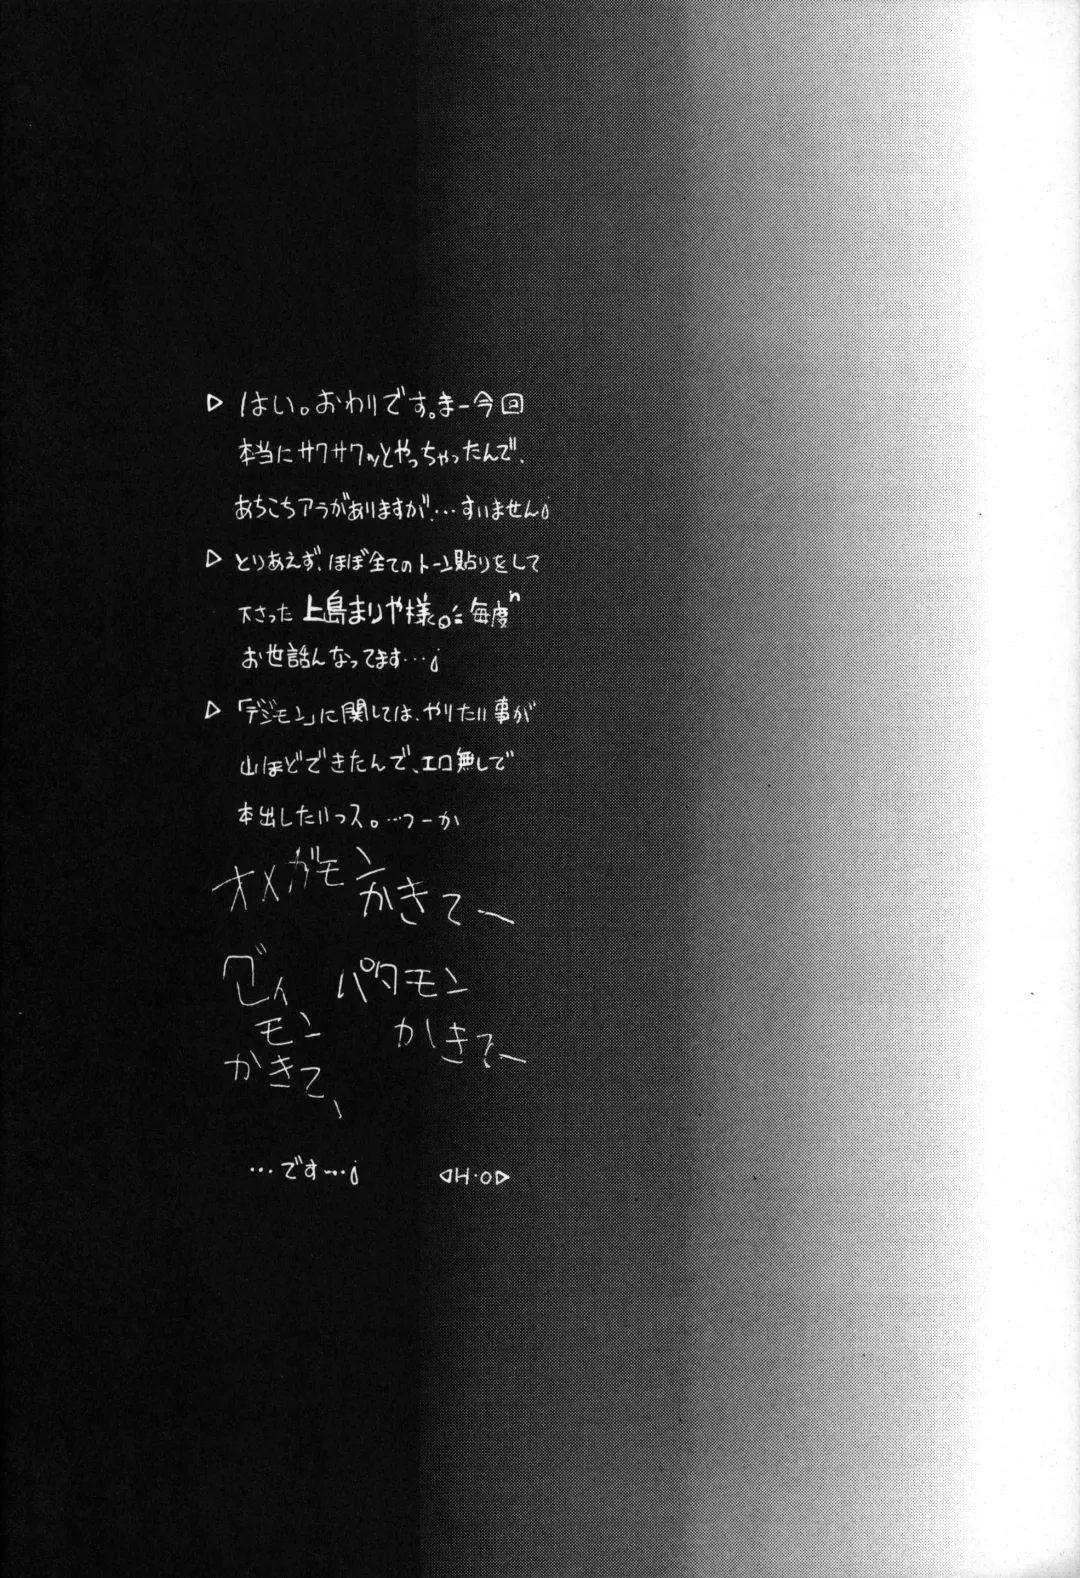 ▷ はい。おわりです。まー今回
本当にサクサクッとやっちゃったんで、
あちこちアラがありますが、…すいません；
▷ とりあえず、ほぼ全てのトーン貼りをして
下さった上島まりや様。毎度
お世話んなってます…；
▷ 「デジモン」に関しては、やりたい事が
山ほどできたんで、エロ無しで
本出したいっス。…つーか
オメガモン
かきてー
ブイ
モン
かきてー
パタモン
かきてー
…です…；
◁H・O▷